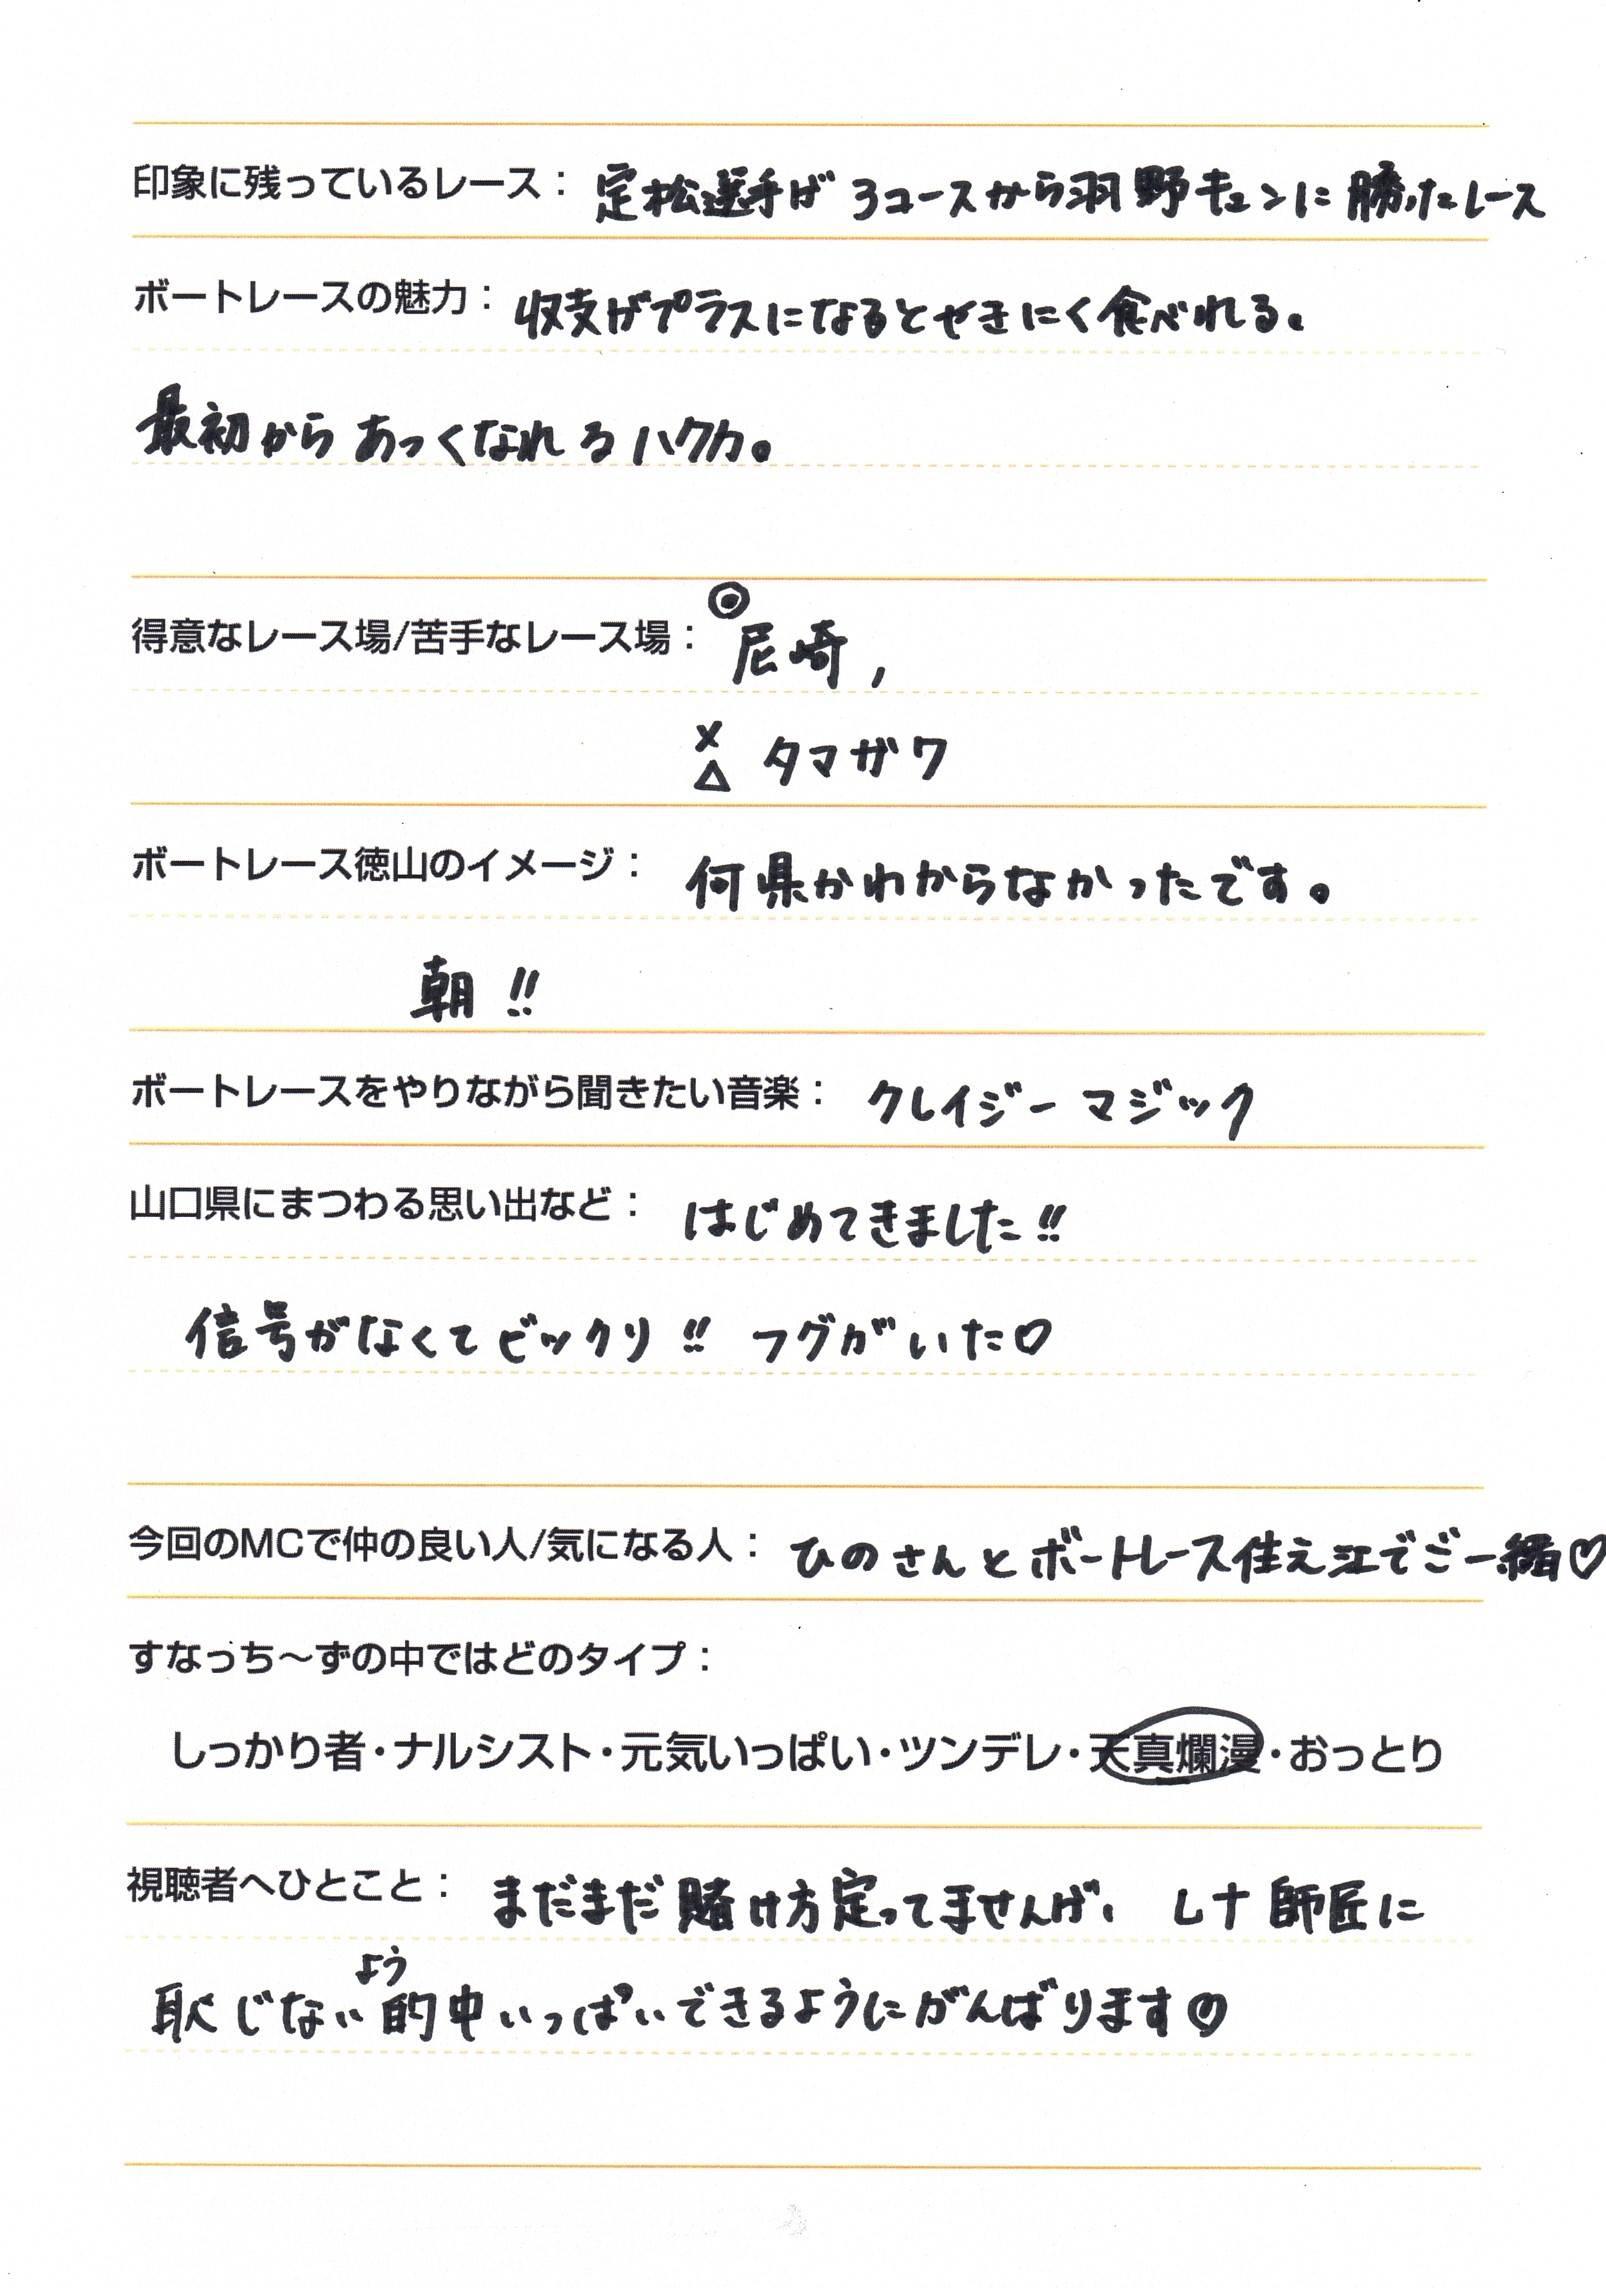 印象に残っているレース： 定松選手が 3コースから羽野キュンに勝ったレース
ボートレースの魅力： 収支がプラスになるとやきにく食べれる。
最初から あっくなれる ハクカ。
◎
得意なレース場/苦手なレース場： 尼崎,
×
△ タマガワ
ボートレース徳山のイメージ： 何県かわからなかったです。
朝!!
ボートレースをやりながら聞きたい音楽： クレイジー マジック
山口県にまつわる思い出など： はじめてきました!!
信号がなくてビックリ!! フグがいた♡
今回のMCで仲の良い人/気になる人： ひのさんとボートレース住之江でご一緒♡
すなっち～ずの中ではどのタイプ：
しっかり者・ナルシスト・元気いっぱい・ツンデレ・天真爛漫・おっとり
視聴者へひとこと： まだまだ賭け方定ってませんが、 レナ師匠に
よう
恥じない的中いっぱいできるようにがんばります♡